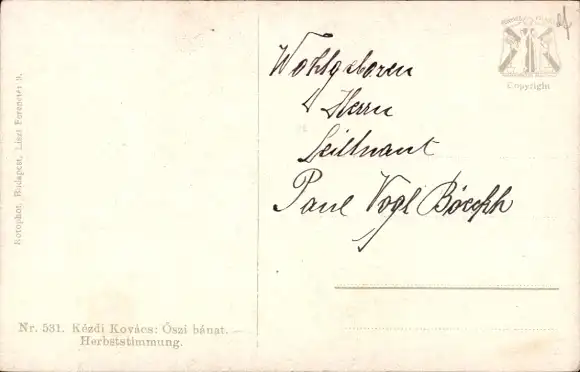 Rotophot, Budapest, Liszt Ferencztér 11.
Nr. 531. Kézdi Kovács: Őszi bánat. —
Herbststimmung.
Wohlgeboren
Herrn
Leittnant
Paul Vogl Böckh
Copyright